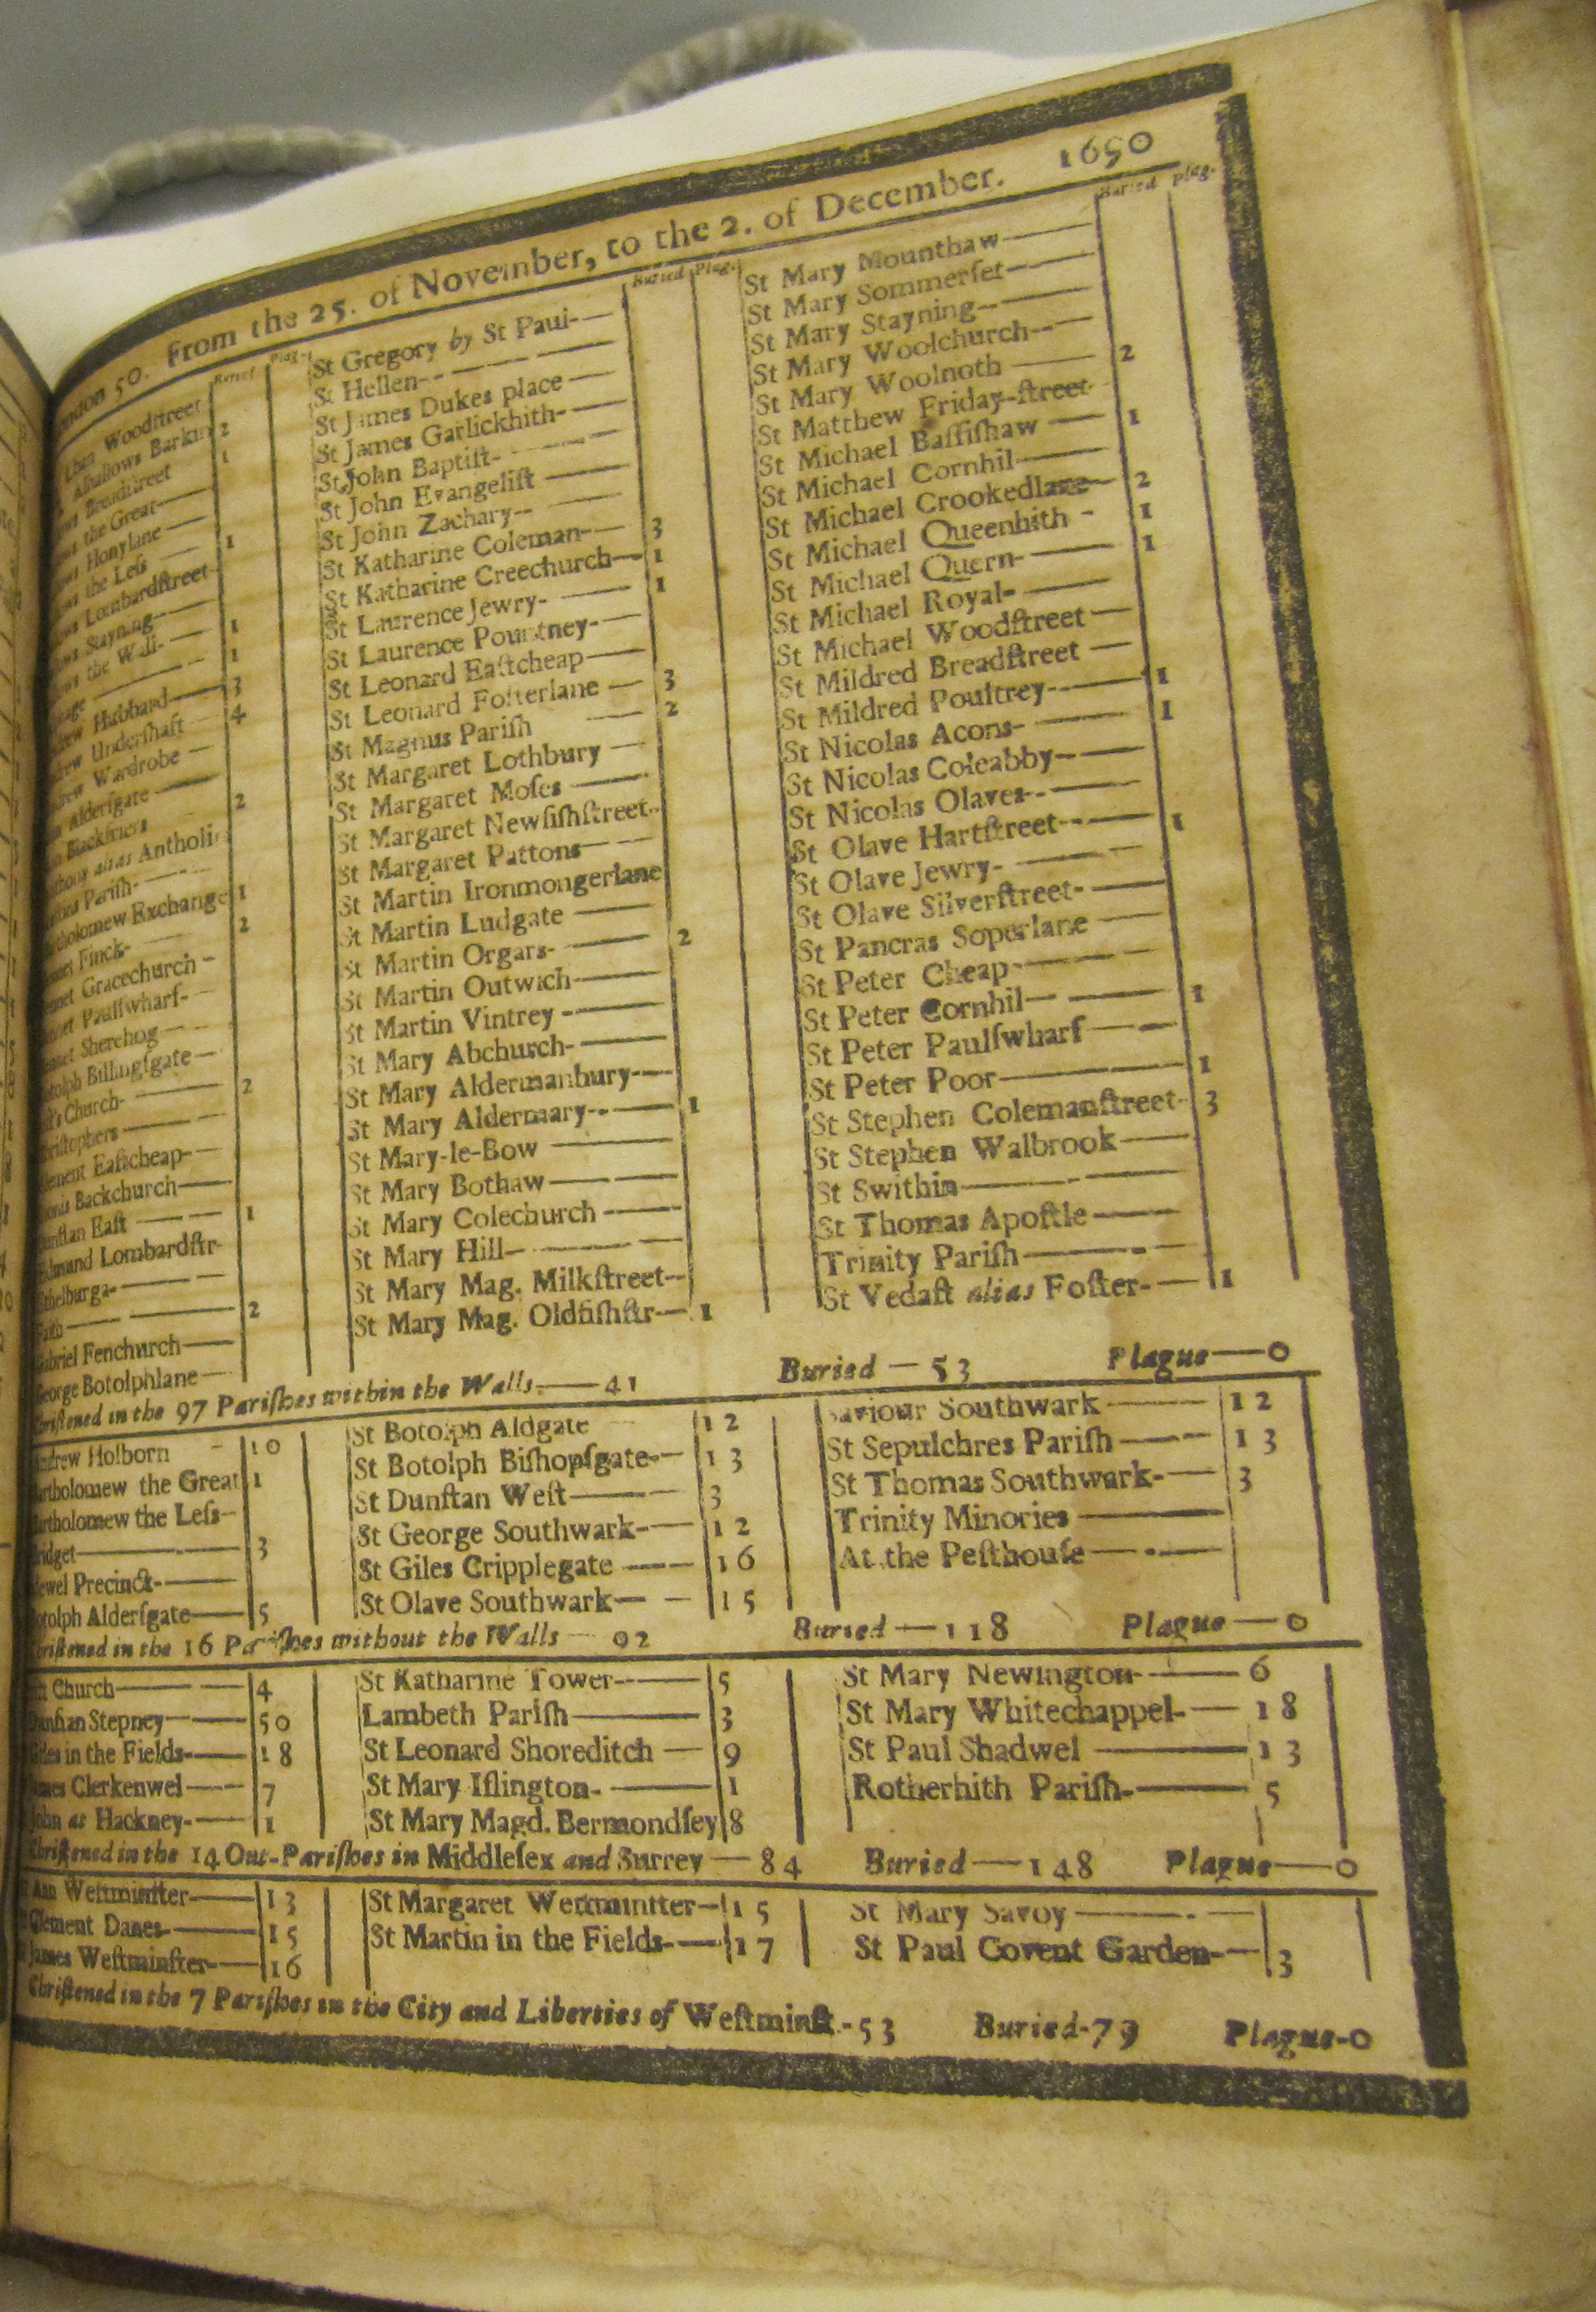 ondon 50. From the 25. of November, to the 2. of December. 1690
Buried Plag.
Woodstreet
Allhallows Barkin 2
Breadstreet 1
the Great
Honylane
the Leſs 1
Lombardſtreet
Stayning
the Wall 1
1
Hubbard 3
Underſhaft 4
Wardrobe
Alderſgate
Blackfriers 2
alias Antholi
Pariſh
tholomew Exchange 1
Finck 2
net Gracechurch
Paulſwharf
Sherehog
tolph Billingſgate
Church 2
ristophers
lement Eaſtcheap
onis Backchurch
unſtan Eaſt 1
dmund Lombardſtr
thelburga
Faith 2
abriel Fenchurch
George Botolphlane
Buried Plag.
St Gregory by St Paul
St Hellen
St James Dukes place
St James Garlickhith
St John Baptiſt
St John Evangeliſt
St John Zachary
St Katharine Coleman 3
St Katharine Creechurch 1
St Laurence Jewry 1
St Laurence Pountney
St Leonard Eaſtcheap
St Leonard Foſterlane 3
St Magnus Pariſh 2
St Margaret Lothbury
St Margaret Moſes
St Margaret Newfiſhſtreet
St Margaret Pattons
St Martin Ironmongerlane
St Martin Ludgate
St Martin Orgars 2
St Martin Outwich
St Martin Vintrey
St Mary Abchurch
St Mary Aldermanbury
St Mary Aldermary 1
St Mary-le-Bow
St Mary Bothaw
St Mary Colechurch
St Mary Hill
St Mary Mag. Milkſtreet
St Mary Mag. Oldfiſhſtr 1
Buried Plag.
St Mary Mounthaw
St Mary Sommerſet
St Mary Stayning
St Mary Woolchurch
St Mary Woolnoth 2
St Matthew Friday-ſtreet
St Michael Baſſiſhaw 1
St Michael Cornhil
St Michael Crookedlane 2
St Michael Queenhith 1
St Michael Quern 1
St Michael Royal
St Michael Woodſtreet
St Mildred Breadſtreet
St Mildred Poultrey 1
St Nicolas Acons 1
St Nicolas Coleabby
St Nicolas Olaves
St Olave Hartſtreet 1
St Olave Jewry
St Olave Silverſtreet
St Pancras Soperlane
St Peter Cheap
St Peter Cornhil 1
St Peter Paulſwharf
St Peter Poor 1
St Stephen Colemanſtreet 3
St Stephen Walbrook
St Swithin
St Thomas Apoſtle
Trinity Pariſh
St Vedaſt alias Foſter 1
riſtened in the 97 Pariſhes within the Walls — 41 Buried — 53 Plague — 0
ndrew Holborn 10
artholomew the Great 1
artholomew the Leſs
ridget 3
dewel Precinct
otolph Alderſgate 5
St Botolph Aldgate 12
St Botolph Biſhopſgate 13
St Dunſtan Weſt 3
St George Southwark 12
St Giles Cripplegate 16
St Olave Southwark 15
Saviour Southwark 12
St Sepulchres Pariſh 13
St Thomas Southwark 3
Trinity Minories
At the Peſthouſe
riſtened in the 16 Pariſhes without the Walls 92 Buried — 118 Plague — 0
Church 4
unſtan Stepney 50
Giles in the Fields 18
ames Clerkenwel 7
John at Hackney 1
St Katharine Tower 5
Lambeth Pariſh 3
St Leonard Shoreditch 9
St Mary Iſlington 1
St Mary Magd. Bermondſey 8
St Mary Newington 6
St Mary Whitechappel 18
St Paul Shadwel 13
Rotherhith Pariſh 5
Chriſtened in the 14 Out-Pariſhes in Middleſex and Surrey — 84 Buried — 148 Plague — 0
Ann Weſtminſter 13
Clement Danes 15
James Weſtminſter 16
St Margaret Weſtminſter 15
St Martin in the Fields 17
St Mary Savoy
St Paul Covent Garden 3
Chriſtened in the 7 Pariſhes in the City and Liberties of Weſtminſt. - 53 Buried - 79 Plague - 0